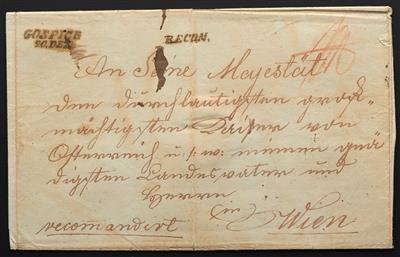 GOSPICH
20. DEZ.
RECOM.
An Seine Majestät
den durchlautigsten groß-
mächtigsten Kaiser von
Österreich u. s. w. meinen gnä-
digsten Landesvater und
Herrn
in
recomandirt Wien